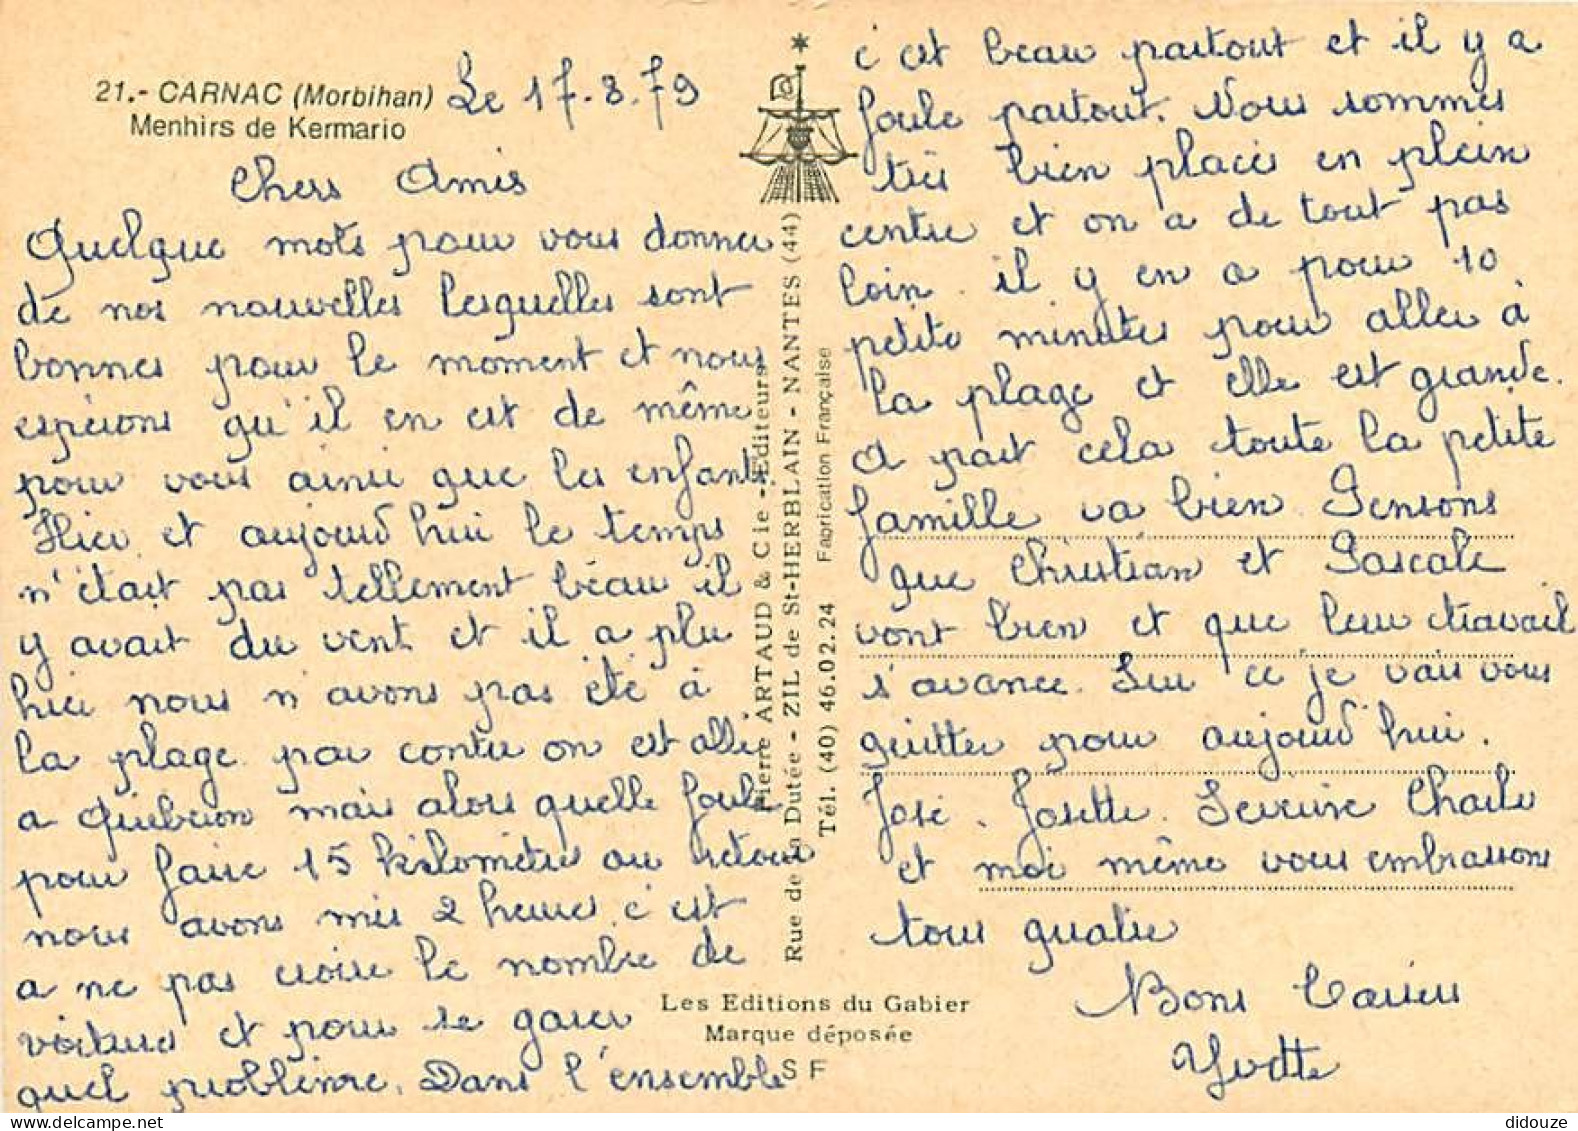 21.- CARNAC (Morbihan)
Menhirs de Kermario
Le 17.8.79
Chers Amis
Quelque mots pour vous donner
de nos nouvelles lesquelles sont
bonnes pour le moment et nous
espérons qu'il en est de même
pour vous ainsi que les enfants
Hier et aujourd hui le temps
n'était pas tellement beau il
y avait du vent et il a plu
hier nous n'avons pas été à
la plage par contre on est allé
a Quiberon mais alors quelle foule
pour faire 15 kilomètre au retour
nous avons mis 2 heures c'est
a ne pas croire le nombre de
voitures et pour se garer
quel problème. Dans l'ensemble
c'est beau partout et il y a
foule partout. Nous sommes
très bien placés en plein
centre et on a de tout pas
loin. il y en a pour 10
petite minutes pour aller à
la plage et elle est grande.
A part cela toute la petite
famille va bien. Pensons
que Christian et Pascale
vont bien et que leur travail
s'avance. Sur ce je vais vous
quitter pour aujourd'hui.
José. Josette. Severine Charles
et moi même vous embrassons
tous quatre
Bons Baisers
Yvette
Pierre ARTAUD & Cie - Editeurs
Rue de la Dutée - ZIL de St-HERBLAIN - NANTES (44)
Tél. (40) 46.02.24 Fabrication Française
Les Editions du Gabier
Marque déposée
S F
didouze